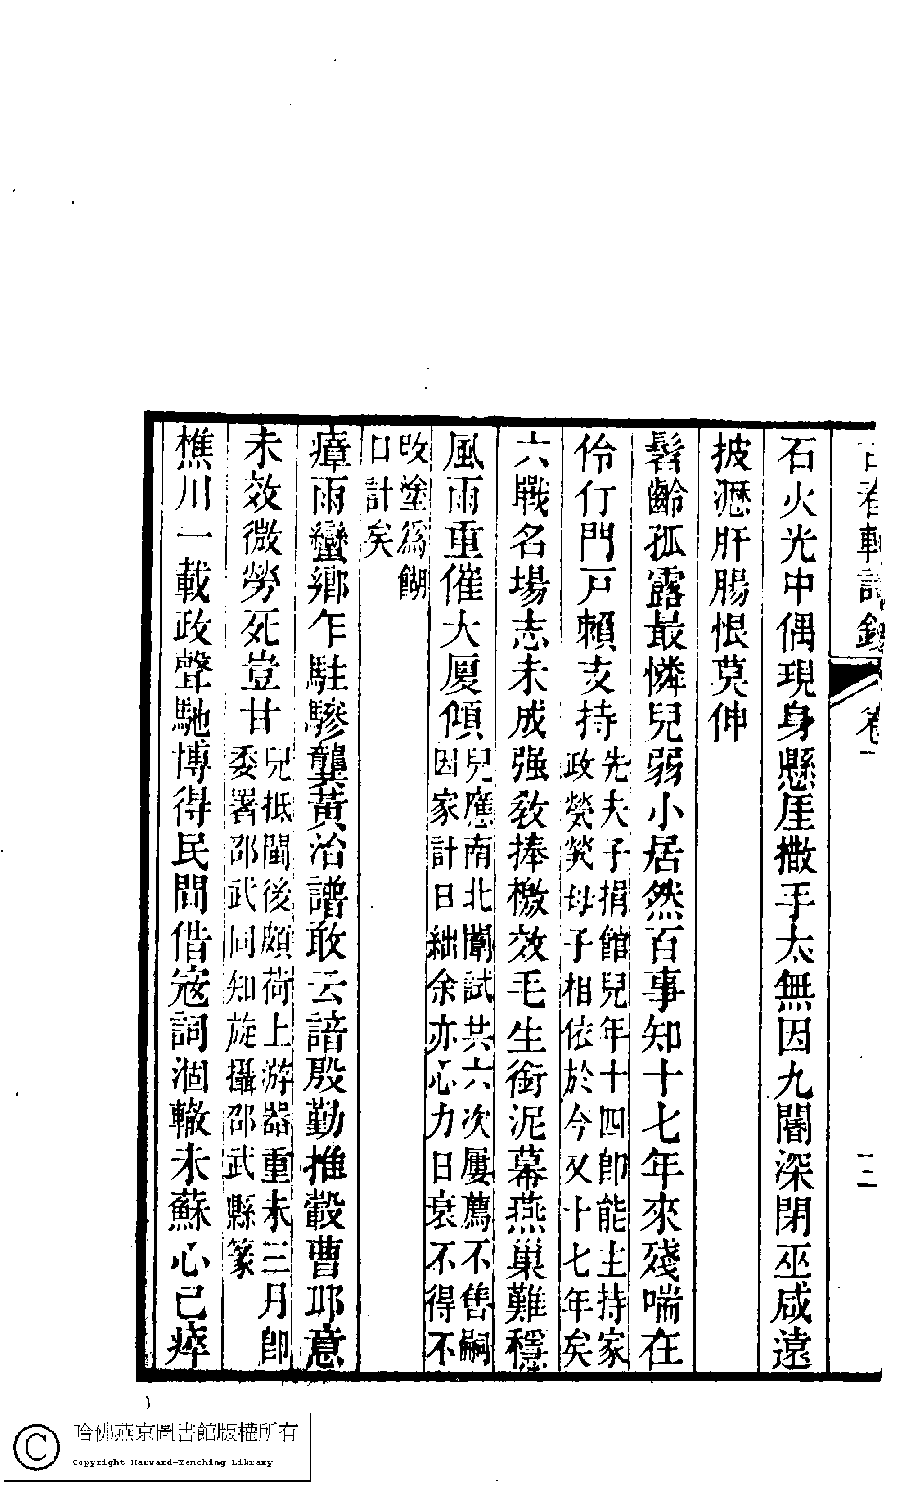 古春軒詩鈔 卷下 二
石火光中偶現身懸厓撒手太無因九閽深閉巫咸遠
披瀝肝腸恨莫伸
髫齡孤露最憐兒弱小居然百事知十七年來殘喘在
伶仃門戸賴支持先夫子捐館兒年十四卽能主持家
政煢煢母子相依於今又十七年矣
六戰名場志未成强教捧檄效毛生銜泥幕燕巢難穩
風雨重催大厦傾兒應南北闈試共六次屢薦不售嗣
因家計日絀余亦心力日衰不得不
改塗爲餬
口計矣
瘴雨蠻鄉乍駐驂龔黃治譜敢云諳殷勤推轂曹邱意
未效微勞死豈甘兒抵閩後頗荷上游器重未三月卽
委署邵武同知旋攝邵武縣篆
樵川一載政聲馳博得民間借寇詞涸轍未蘇心已瘁
哈佛燕京圖書館版權所有
Copyright Harvard-Yenching Library